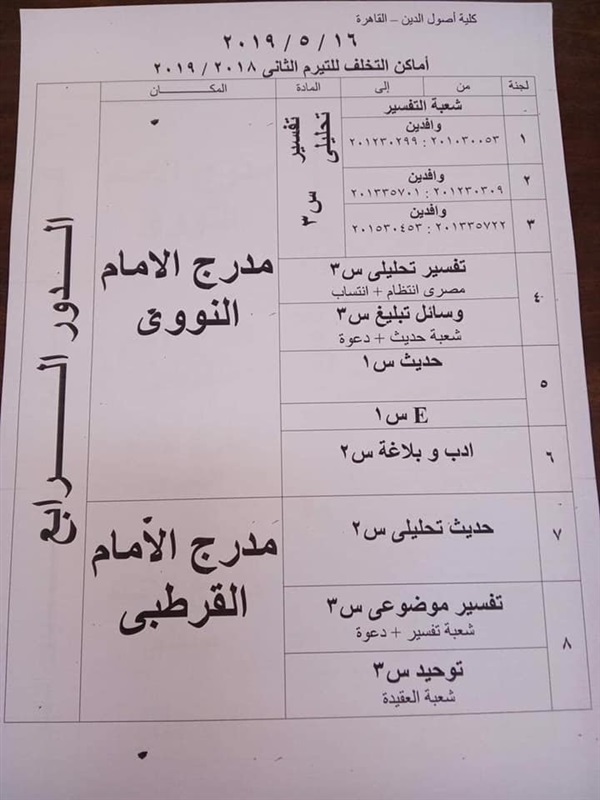 كلية أصول الدين – القاهرة
١٦ / ٥ / ٢٠١٩
أماكن التخلف للتيرم الثانى ٢٠١٨ / ٢٠١٩
لجنة من إلى المادة المكـــان
شعبة التفسير
١
وافدين
٢٠١٠٣٠٠٥٣ : ٢٠١٢٣٠٢٩٩
٢
وافدين
٢٠١٢٣٠٣٠٩ : ٢٠١٣٣٥٧٠١
٣
وافدين
٢٠١٣٣٥٧٢٢ : ٢٠١٥٣٠٤٥٣
تفسير
تحليلى
س٣
٤
تفسير تحليلى س٣
مصرى انتظام + انتساب
وسائل تبليغ س٣
شعبة حديث + دعوة
٥
حديث س١
E س١
٦
ادب و بلاغة س٢
مدرج الامام
النووى
٧
حديث تحليلى س٢
٨
تفسير موضوعى س٣
شعبة تفسير + دعوة
توحيد س٣
شعبة العقيدة
مدرج الأمام
القرطبى
الــدور الــــرابع